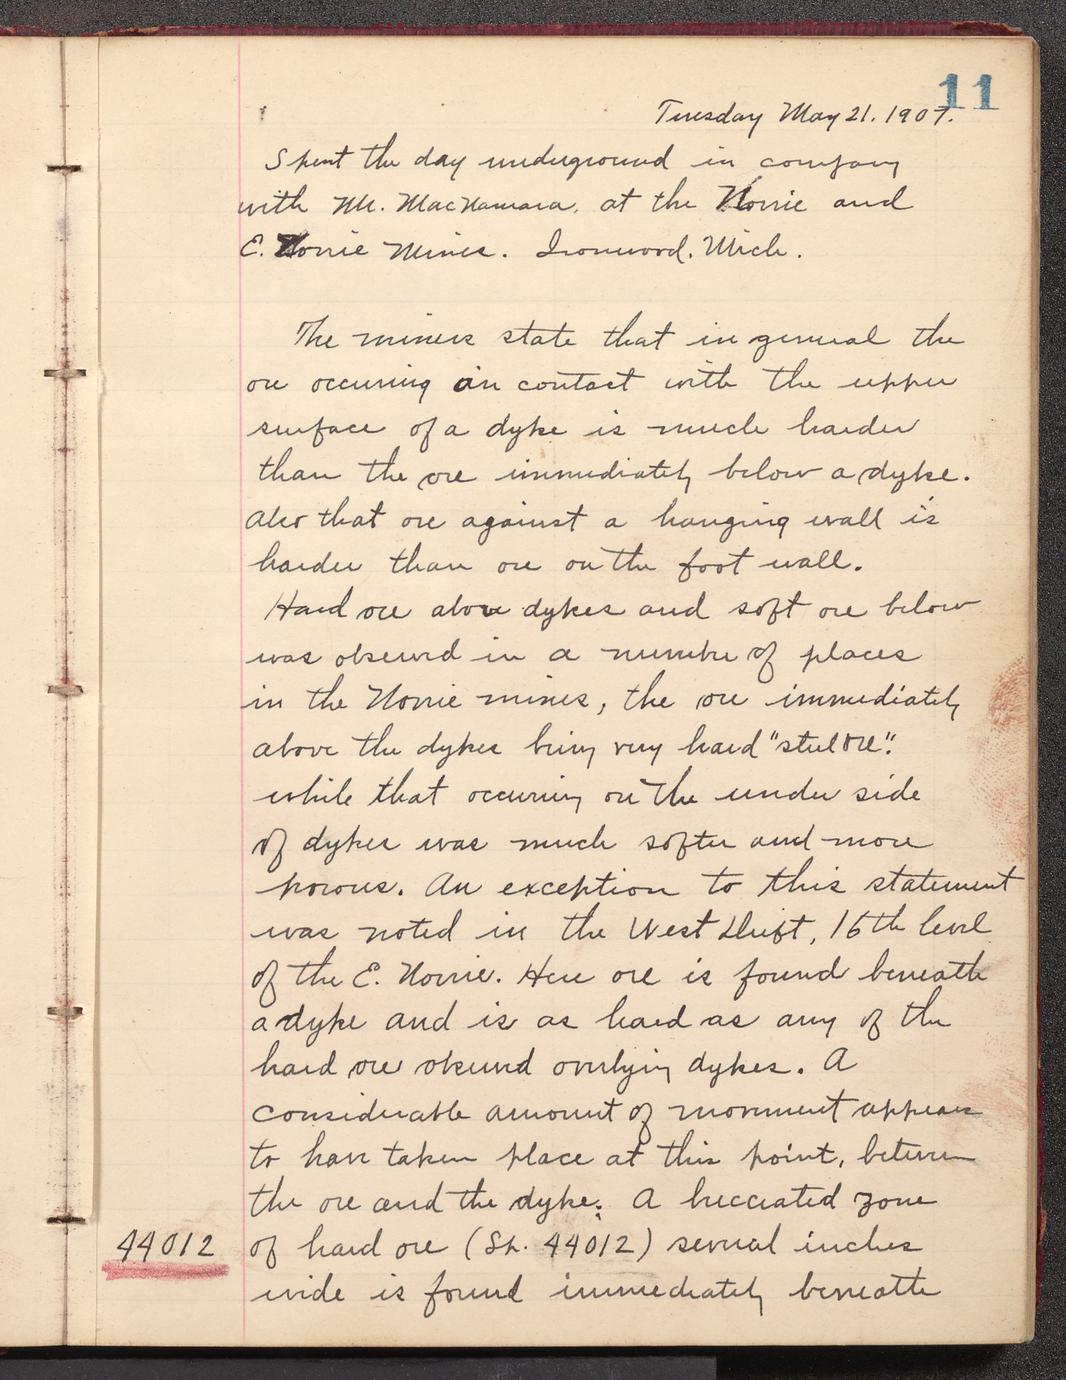 11
Tuesday May 21. 1907.
Spent the day underground in company
with Mr. MacNamara, at the Norrie and
E. Norrie Mines. Ironwood. Mich.
The miners state that in general the
ore occuring in contact with the upper
surface of a dyke is much harder
than the ore immediately below a dyke.
Also that ore against a hanging wall is
harder than ore on the foot wall.
Hard ore above dykes and soft ore below
was observed in a number of places
in the Norrie mines, the ore immediately
above the dykes being very hard "steel ore".
while that occuring on the under side
of dykes was much softer and more
porous. An exception to this statement
was noted in the West Drift, 16th level
of the E. Norrie. Here ore is found beneath
a dyke and is as hard as any of the
hard ore observed overlying dykes. A
considerable amount of movement appears
to have taken place at this point, between
the ore and the dyke. A brecciated zone
44012 of hard ore (Sp. 44012) several inches
wide is found immediately beneath